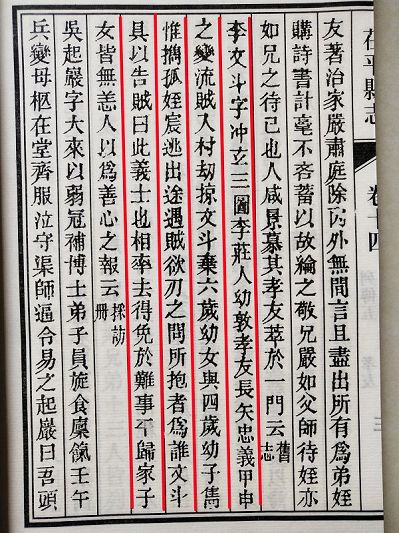 友著治家嚴肅庭除內外無閒言且盡出所有為弟姪
購詩書計毫不吝蓄以故綸之敬兄嚴如父師待姪亦
如兄之待己也人咸景慕其孝友萃於一門云舊志
李文斗字冲玄三圖李莊人幼敦孝友長矢忠義甲申
之變流賊入村劫掠文斗棄六歲幼女與四歲幼子雋
惟攜孤姪宸逃出途遇賊欲刃之問所抱者為誰文斗
具以告賊曰此義士也相率去得免於難事平歸家子
女皆無恙人以為善心之報云採訪冊
吳起嚴字大來以弱冠補博士弟子員旋食廩餼壬午
兵變母柩在堂齊服泣守渠師逼令易之起嚴曰吾頭
茌平縣志
卷十四